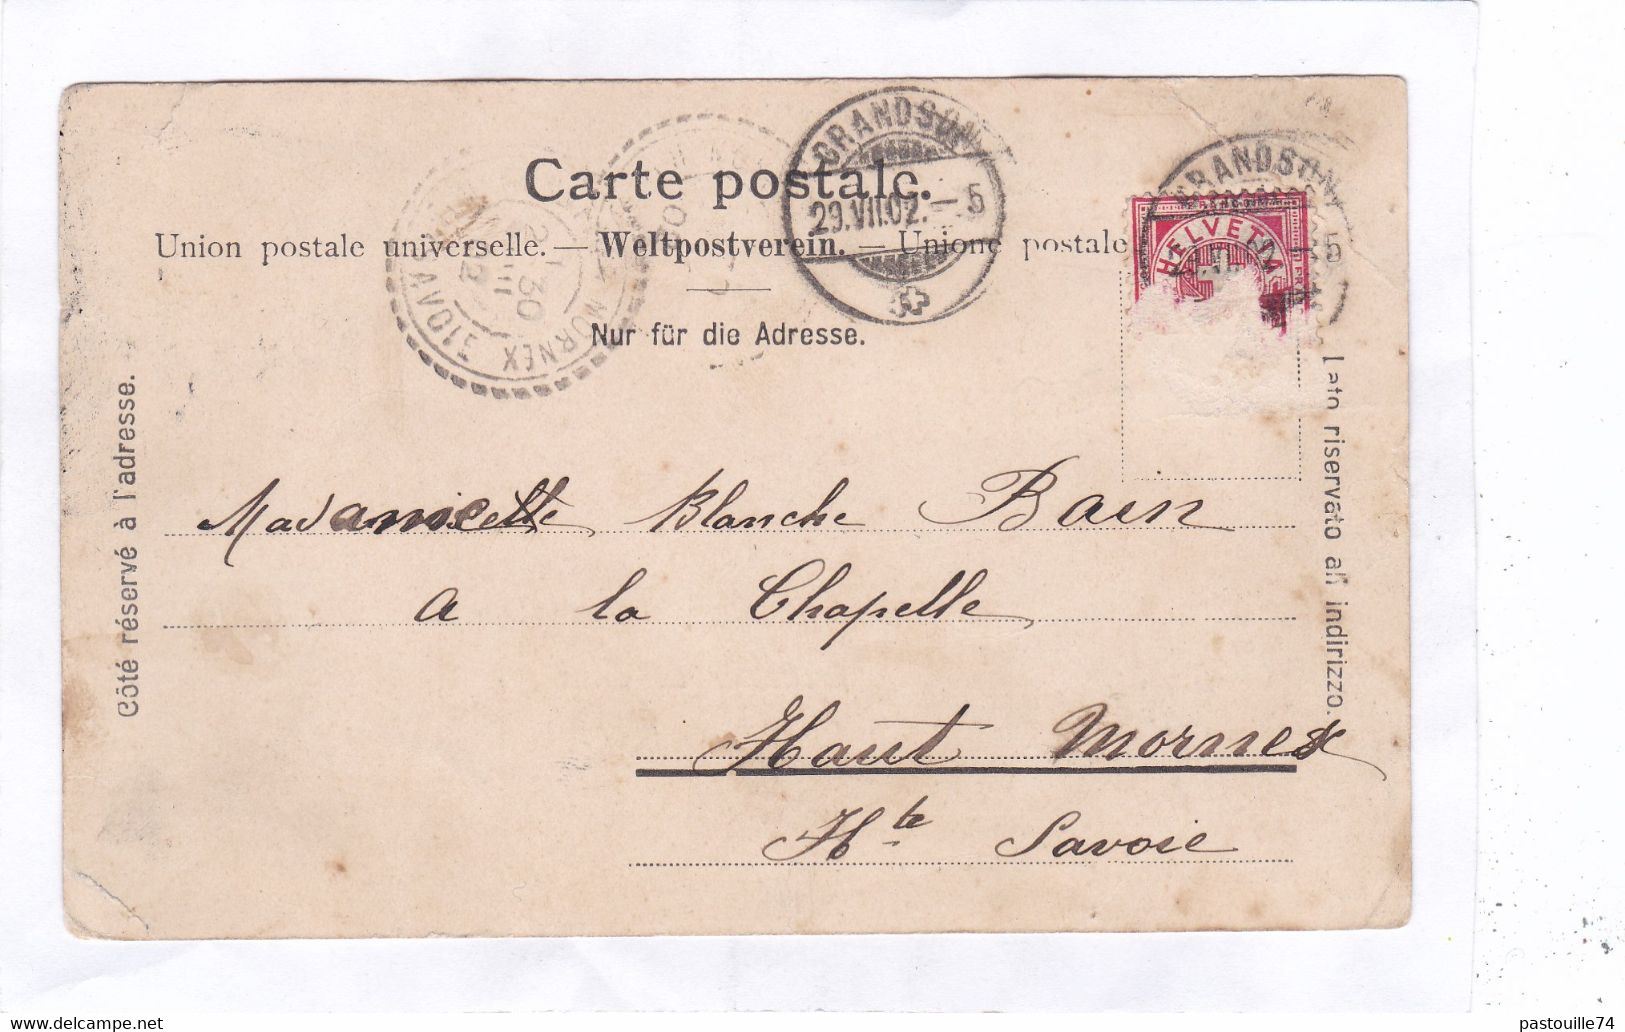 Carte postale.
Union postale universelle. — Weltpostverein. — Unione postale
Nur für die Adresse.
Côté réservé à l'adresse.
Lato riservato all' indirizzo.
GRANDSON
29.VII.02. – 5
GRANDSON
– 5
HELVETIA
MORNEX
30
Blanche Bain
a la Chapelle
Haut Mornex
Hte Savoie
delcampe.net
pastouille74